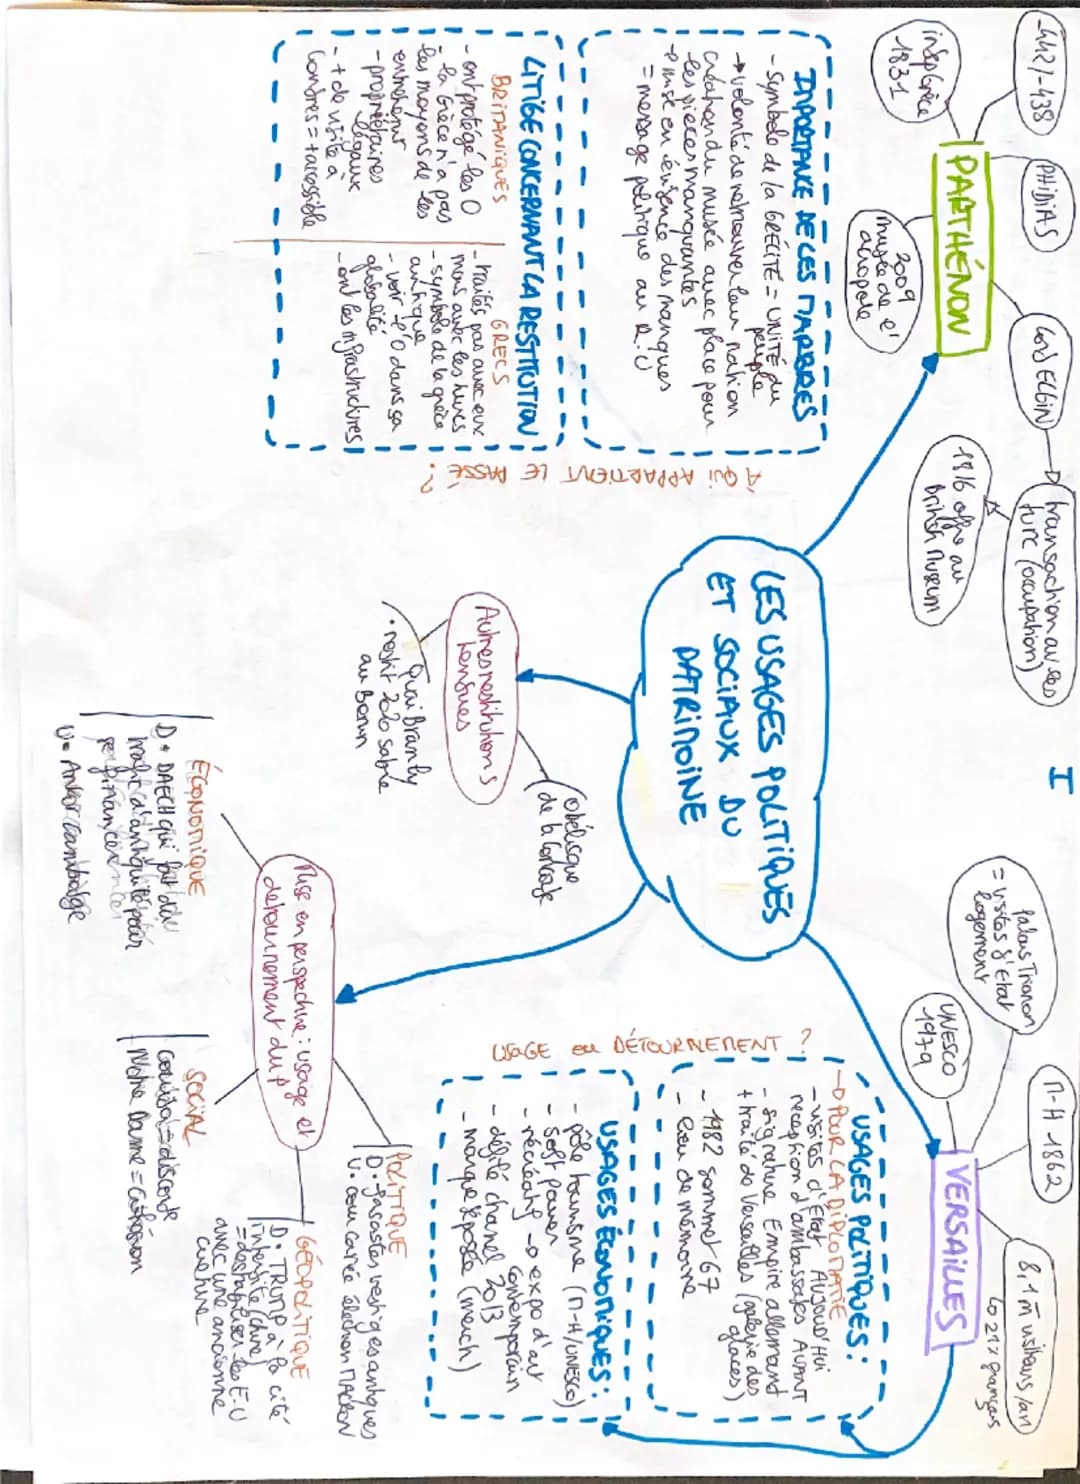 I
LES USAGES POLITIQUES
ET SOCIAUX DU
PATRIMOINE
PARTHÉNON
-442/-438
PHIDIAS
indep Grèce
1831
2009
musée de l'
acropole
Lord ELGIN
transaction av. les
turc (occupation)
1816 offre au
British Museum
IMPORTANCE DE CES MARBRES
- symbole de la GRÉCITÉ = UNITÉ du
peuple
→ volonté de retrouver leur nation
création du musée avec place pour
les pièces manquantes
→ mise en évidence des manques
= message politique au R.U
LITIGE CONCERNANT LA RESTITUTION
BRITANIQUES
- ont protégé les O
- la Grèce n'a pas
les moyens de les
entretenir
- propriétaires
légaux
- + de visite à
Londres = + accessible
GRECS
- traités pas avec eux
mais avec les turcs
- symbole de la grèce
antique
- voir l'O dans sa
globalité
- ont les infrastructures
À QUI APPARTIENT LE PASSÉ ?
Autres restitutions
connues
obélisque
de la Concorde
Quai Branly
• restit 2020 sabre
au Bénin
VERSAILLES
Palais Trianon
= visites d'État
logement
UNESCO
1979
M-H 1862
8,1 M visiteurs/an
↳ 21% français
USAGE ou DÉTOURNEMENT ?
USAGES POLITIQUES :
→ POUR LA DIPLOMATIE
- visites d'État AUJOURD'HUI
réception d'ambassades AVANT
- signature Empire allemand
+ traité de Versailles (galerie des
glaces)
- 1982 sommet G7
- lieu de mémoire
USAGES ÉCONOMIQUES :
- pôle tourisme (M-H/UNESCO)
- soft power
- récréatif → expo d'art
contemporain
- défilé chanel 2013
- marque déposée (merch)
Mise en perspective : usage et
détournement du p
ÉCONOMIQUE
D • DAECH qui fait du
trafic d'antiquités pour
financer
U • Ankor cambodge
SOCIAL
= discorde
Notre Dame = cohésion
POLITIQUE
D. vestiges antiques
U. cour carrée élection MACRON
GÉOPOLITIQUE
D • TRUMP à la cité
interdite (chine)
= les E-U
avec une ancienne
culture